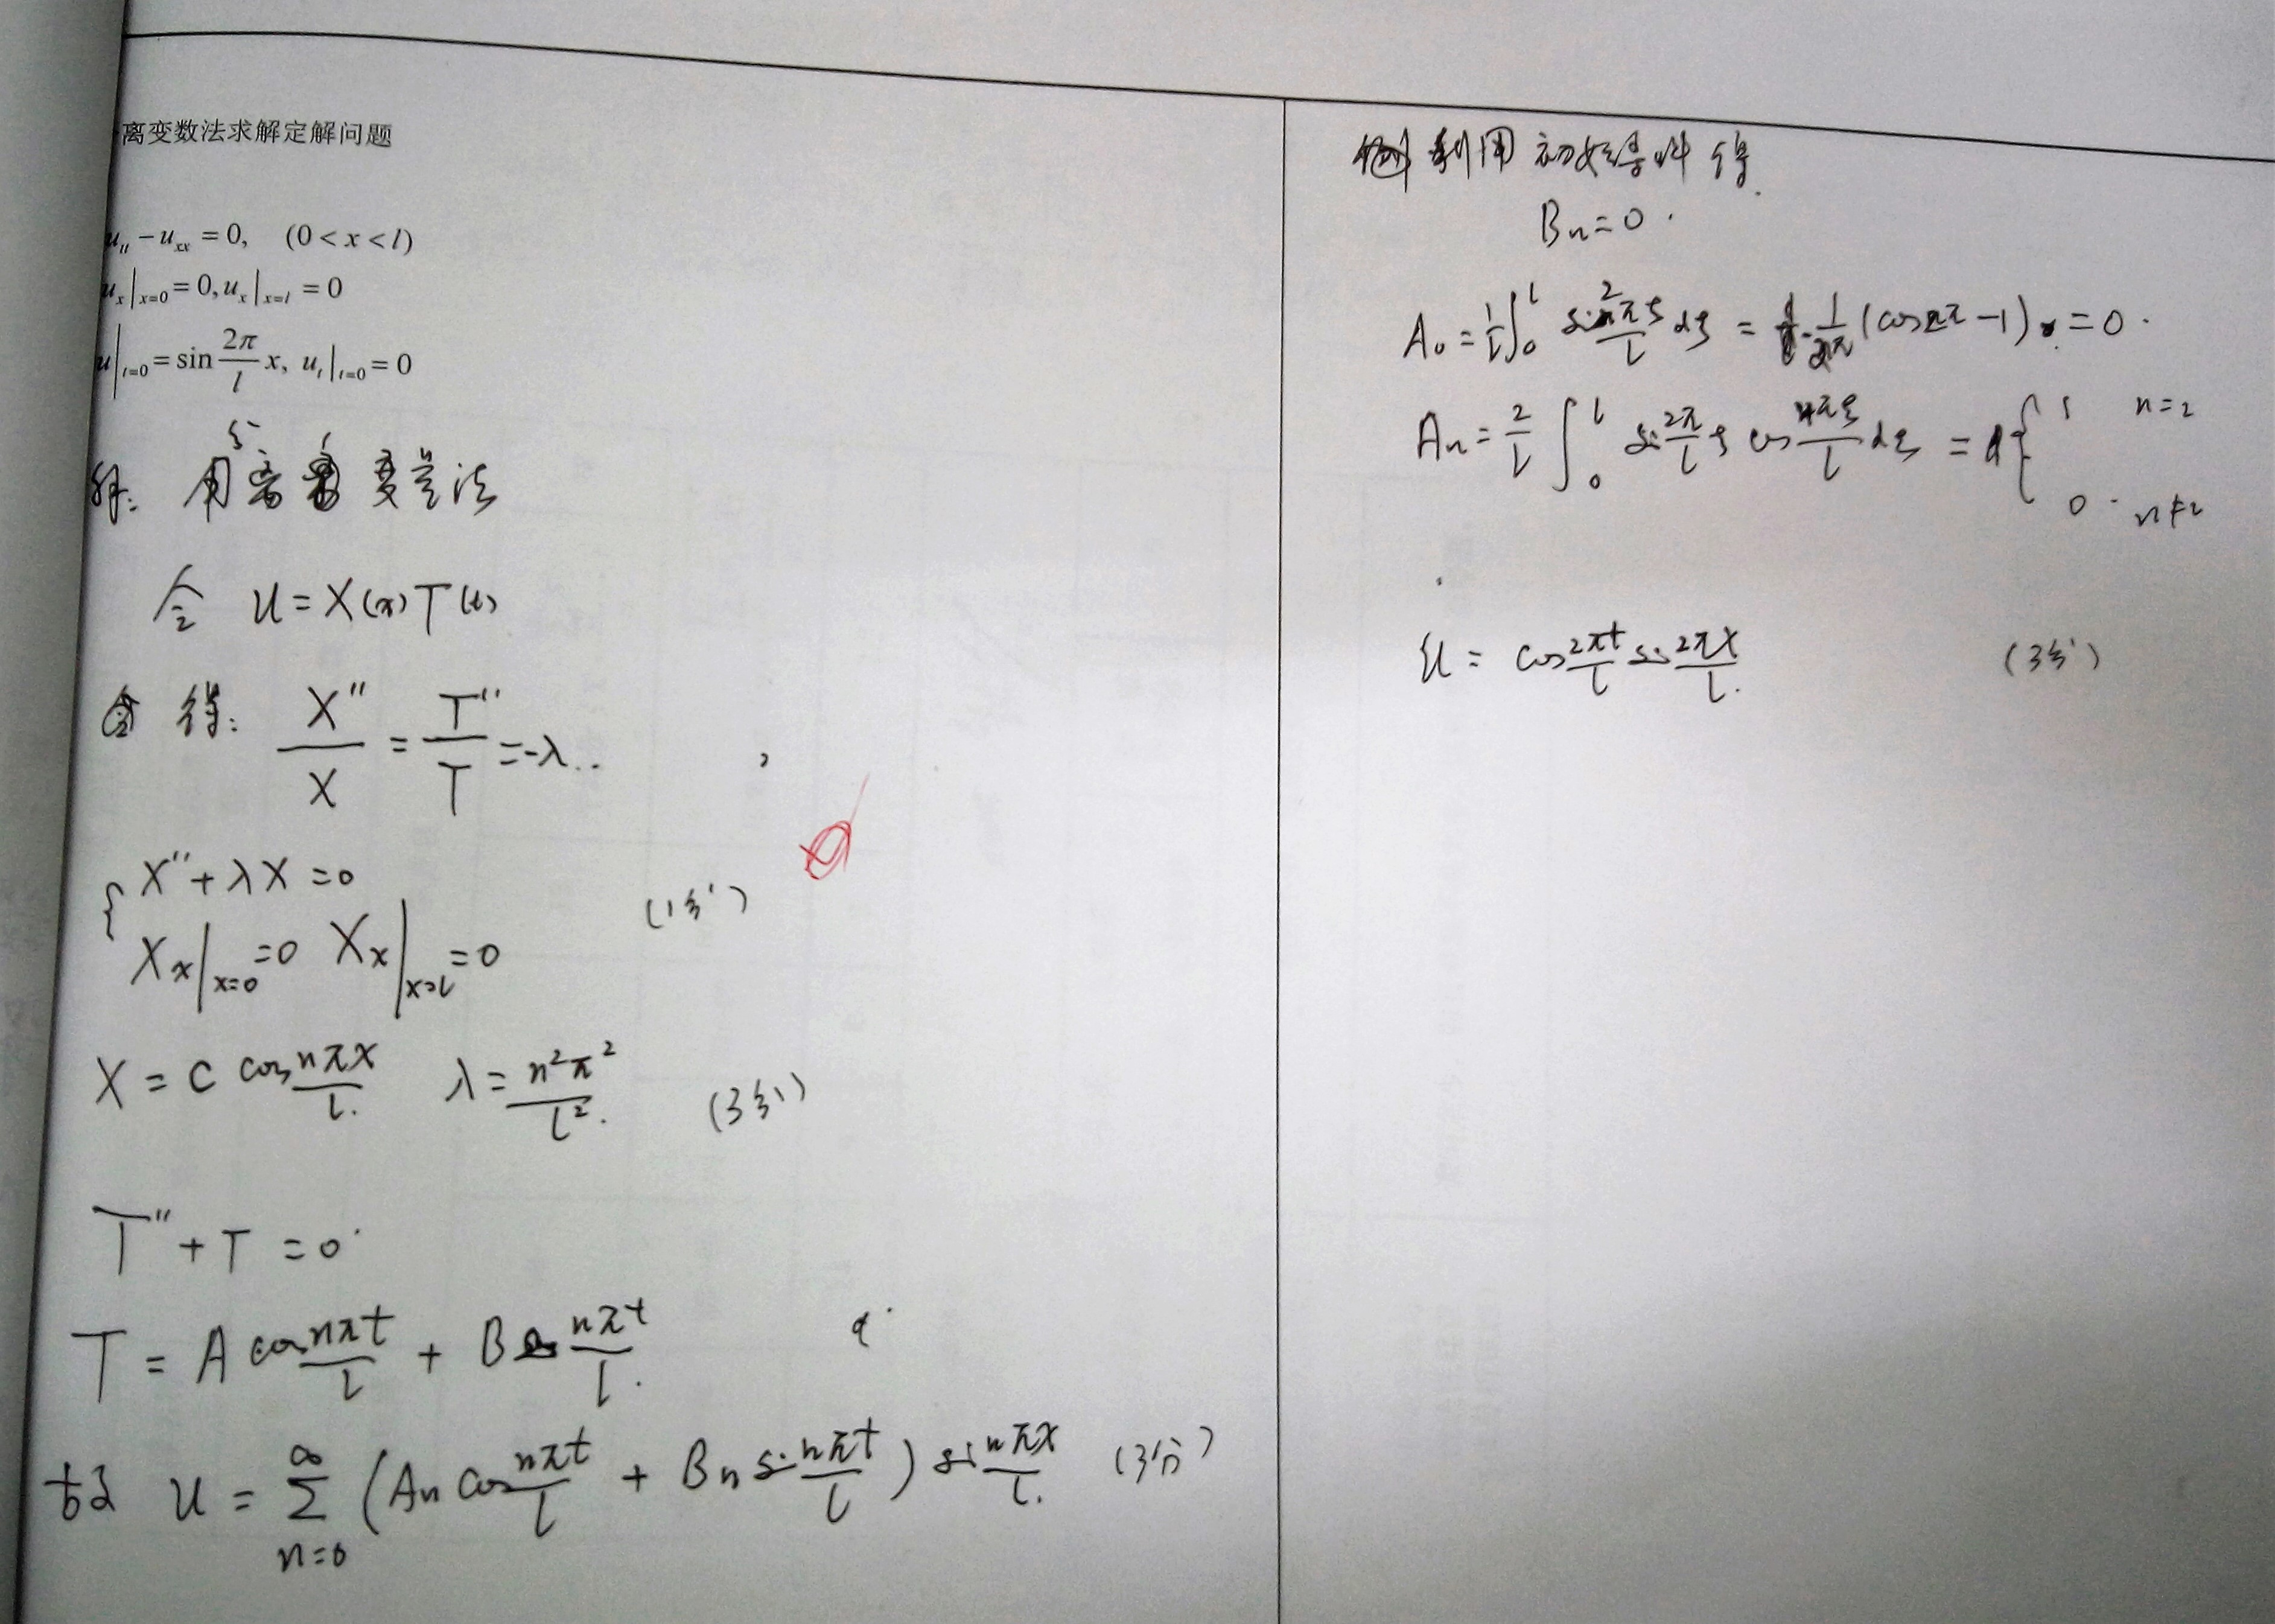 离变数法求解定解问题
u_tt − u_xx = 0, (0 < x < l)
u_x|_{x=0} = 0, u_x|_{x=l} = 0
u|_{t=0} = sin 2π/l x, u_t|_{t=0} = 0
解: 用分离变量法
令 u = X(x)T(t)
得: X''/X = T''/T = -λ..
{ X'' + λX = 0
X_x|_{x=0} = 0 X_x|_{x=l} = 0 (1分)
X = C cos nπx/l. λ = n²π²/l². (3分)
T'' + T = 0
T = A cos nπt/l + B sin nπt/l.
故 u = ∑_{n=0}^{∞} (An cos nπt/l + Bn sin nπt/l) sin nπx/l. (3分)
利用初始条件得
Bn = 0.
A₀ = 1/l ∫₀^l sin 2πξ/l dξ = - 1/2π (cos2π − 1) = 0.
An = 2/l ∫₀^l sin 2π/l ξ cos nπξ/l dξ = { 1 n=2
0. n≠2
u = cos 2πt/l sin 2πx/l. (3分)